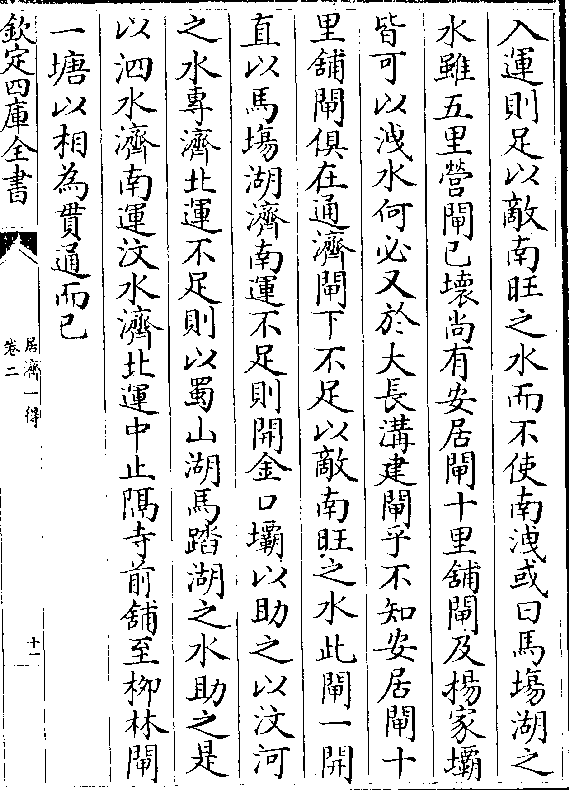 入運則足以敵南旺之水而不使南洩或曰馬塲湖之
水雖五里營閘已壞尚有安居閘十里舖閘及楊家壩
皆可以洩水何必又於大長溝建閘乎不知安居閘十
里舖閘俱在通濟閘下不足以敵南旺之水此閘一開
直以馬塲湖濟南運不足則開金口壩以助之以汶河
之水專濟北運不足則以蜀山湖馬踏湖之水助之是
以泗水濟南運汶水濟北運中止隔寺前舖至栁林閘
一塘以相為貫通而已
欽定四庫全書
居濟一得
卷二
十一